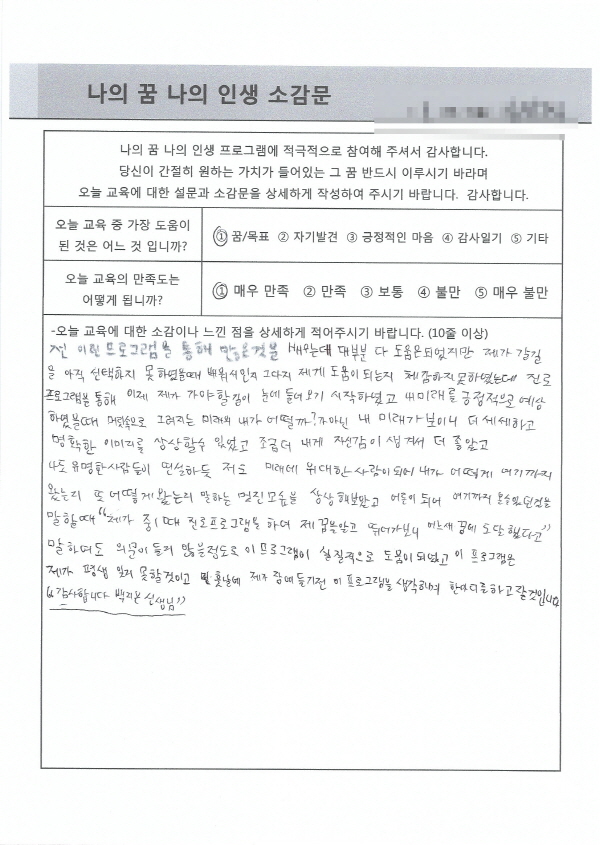 나의 꿈 나의 인생 소감문
나의 꿈 나의 인생 프로그램에 적극적으로 참여해 주셔서 감사합니다.
당신이 간절히 원하는 가치가 들어있는 그 꿈 반드시 이루시기 바라며
오늘 교육에 대한 설문과 소감문을 상세하게 작성하여 주시기 바랍니다. 감사합니다.
오늘 교육 중 가장 도움이
된 것은 어느 것 입니까?
① 꿈/목표 ② 자기발견 ③ 긍정적인 마음 ④ 감사일기 ⑤ 기타
오늘 교육의 만족도는
어떻게 됩니까?
① 매우 만족 ② 만족 ③ 보통 ④ 불만 ⑤ 매우 불만
-오늘 교육에 대한 소감이나 느낀 점을 상세하게 적어주시기 바랍니다. (10줄 이상)
전 이런프로그램을 통해 많은것을 배웠는데 대부분 다 도움은되었지만 제가 갈길
을 아직 선택하지 못하였을때 배워서인지 그다지 제게 도움이 되는지 체감하지못하였는데 진로
프로그램을 통해 이제 제가 가야할길이 눈에 들어오기 시작하였고 내미래를 긍정적으로 예상
하였을때 머릿속으로 그려지는 미래의 내가 어떨까?가아닌 내 미래가보이니 더 세세하고
명확한 이미지를 상상할수 있었고 조금더 내게 자신감이 생겨서 더 좋았고
나도 유명한사람들이 연설하듯 저도 미래에 위대한 사람이되어 내가 어떻게 여기까지
왔는지 또 어떻게 왔는지 말하는 멋진모습을 상상해보았고 어른이 되어 여기까지 올수있던것을
말할때 "제가 중1때 진로프로그램을 하여 제 꿈을알고 뛰어가보니 어느새 꿈에 도달했다고"
말하여도 의문이 들지 않을정도로 이프로그램이 실질적으로 도움이 되었고 이 프로그램은
제가 평생 잊지 못할것이고 먼 훗날에 제가 잠에들기전 이 프로그램을 생각하며 한마디를하고 갈것입니다
"감사합니다 백지은 선생님"